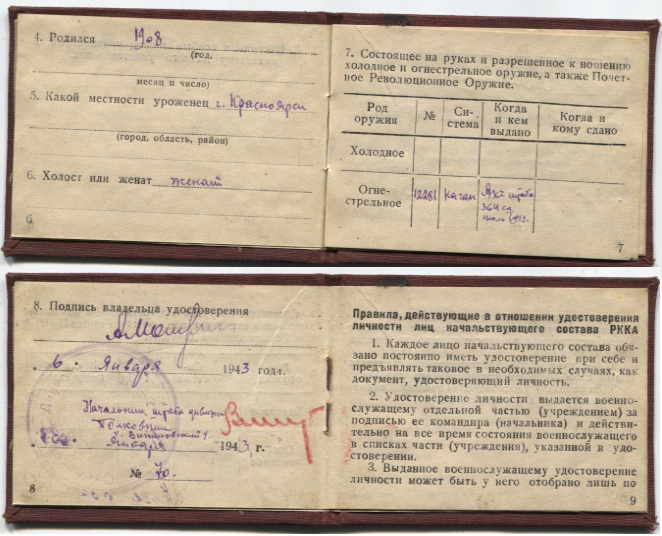 4. Родился 1908
(год,
месяц и число)
5. Какой местности уроженец г. Красноярск
(город, область, район)
6. Холост или женат женат
6
7. Состоящее на руках и разрешенное к ношению
холодное и огнестрельное оружие, а также Почет-
ное Революционное Оружие.
Род оружия № Си-стема Когда и кем выдано Когда и кому сдано
Холодное
Огне-стрельное 12281 Наган штаба 364 сд 1942.
7
8. Подпись владельца удостоверения
6. Января 1943 года.
Начальник штаба дивизии
Полковник
Января 1943 г.
№ 70.
8
Правила, действующие в отношении удостоверения
личности лиц начальствующего состава РККА
1. Каждое лицо начальствующего состава обя-
зано постоянно иметь удостоверение при себе и
предъявлять таковое в необходимых случаях, как
документ, удостоверяющий личность.
2. Удостоверение личности выдается военно-
служащему отдельной частью (учреждением) за
подписью ее командира (начальника) и действи-
тельно на все время состояния военнослужащего
в списках части (учреждения), указанной в удо-
стоверении.
3. Выданное военнослужащему удостоверение
личности может быть у него отобрано лишь по
9